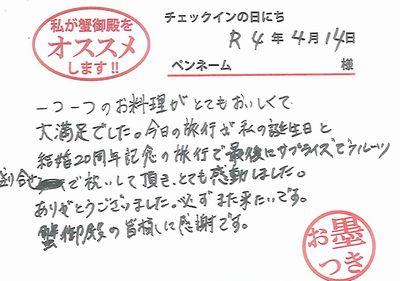 私が蟹御殿を
オススメ
します!!
チェックインの日にち
R4年4月14日
ペンネーム 様
一つ一つのお料理がとてもおいしくて
大満足でした。今日の旅行が私の誕生日と
結婚20周年記念の旅行で最後にサプライズでフルーツ
盛り合せで祝いして頂き、とても感動しました。
ありがとうございました。必ずまた来たいです。
蟹御殿の皆様に感謝です。
お墨
つき